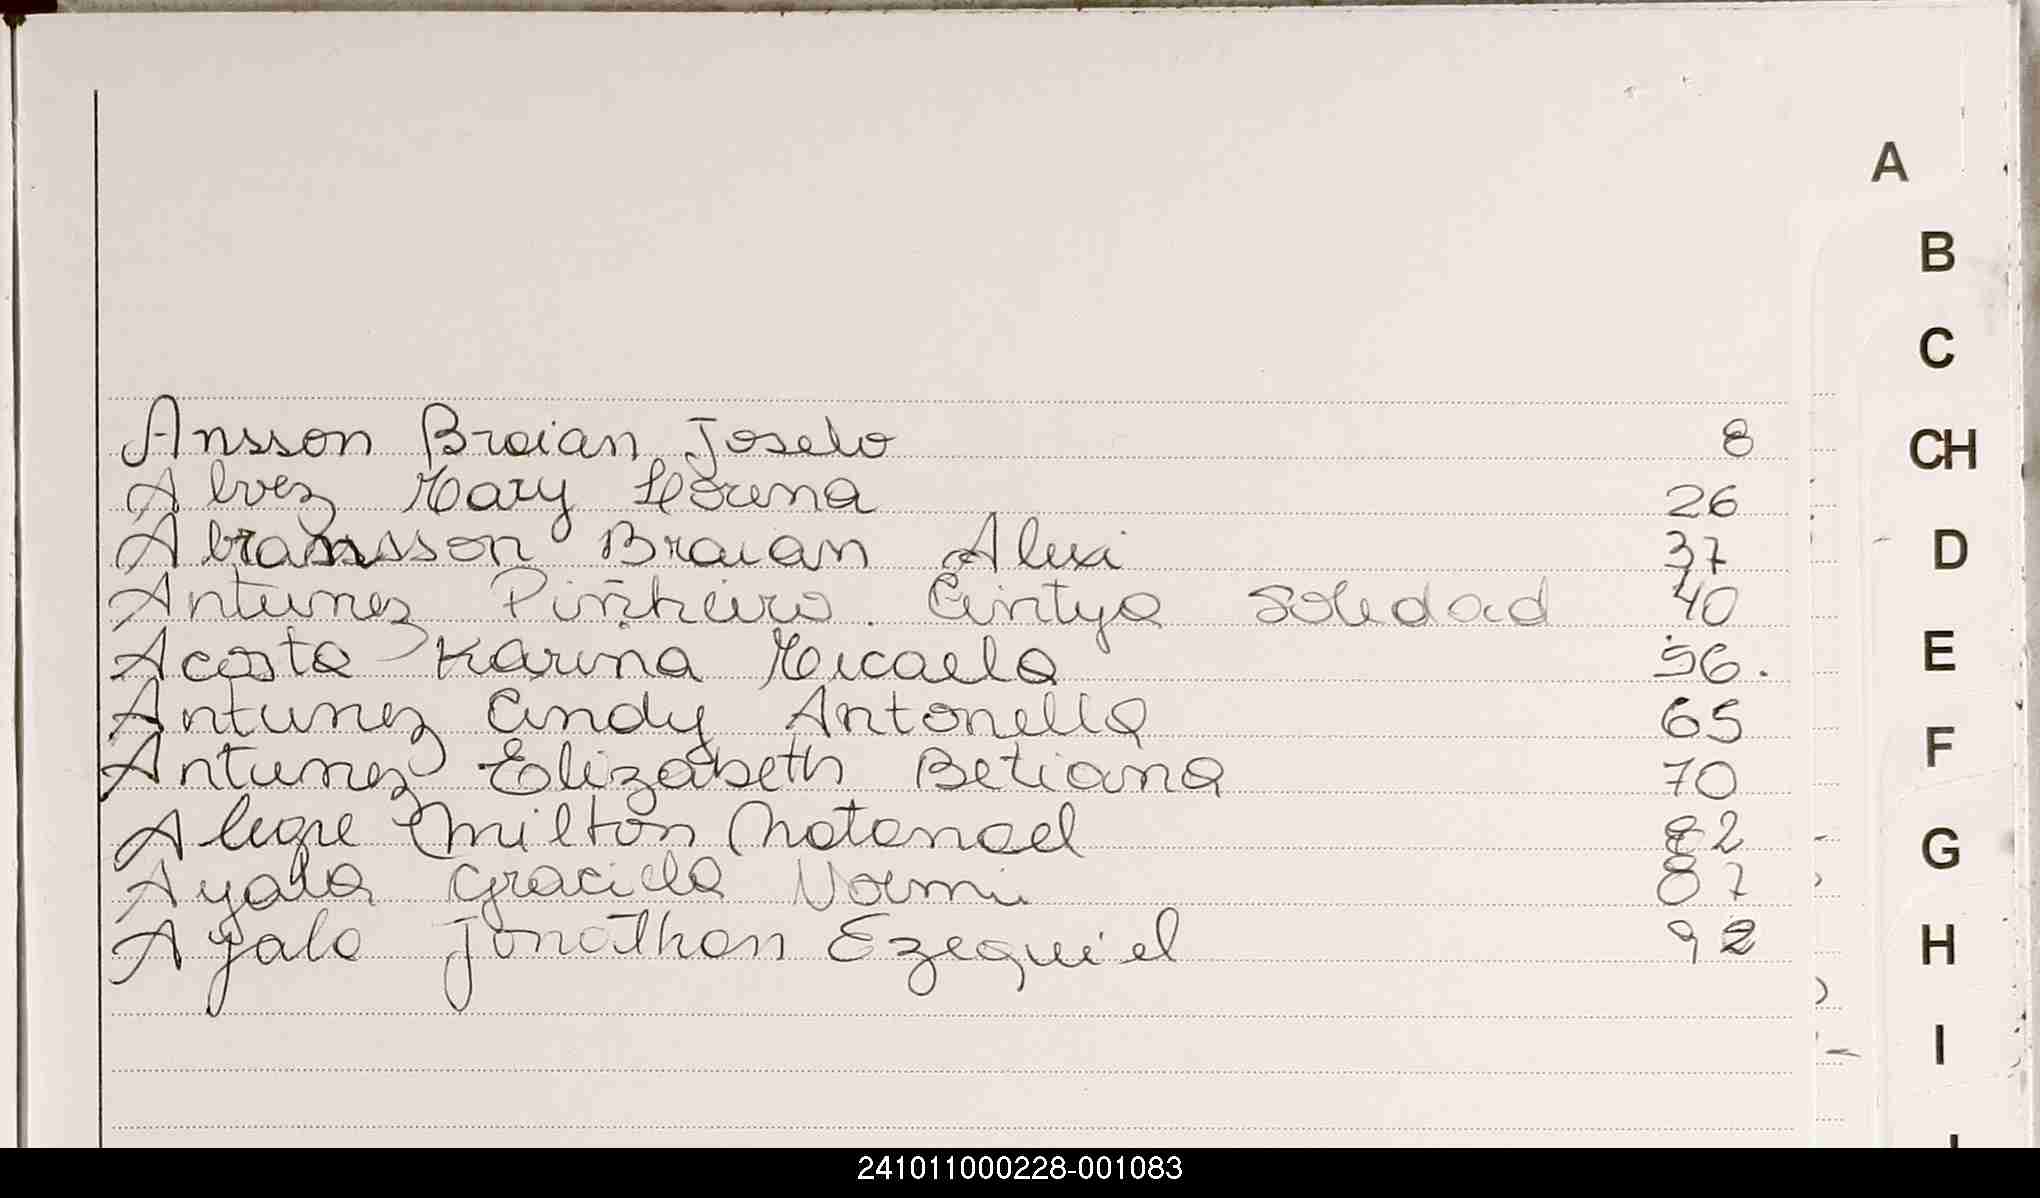 A
B
C
CH
D
E
F
G
H
I
Ansson Braian Joselo 8
Alvez Mary Lorena 26
Abramsson Braian Alexi 37
Antunez Piñheiro. Cintya Soledad 40
Acosta Karina Micaela 56.
Antunez Cindy Antonella 65
Antunez Elizabeth Betiana 70
Alegre Milton Natanael 82
Ayala Graciela Noemi 87
Ayala Jonathan Ezequiel 92
241011000228-001083